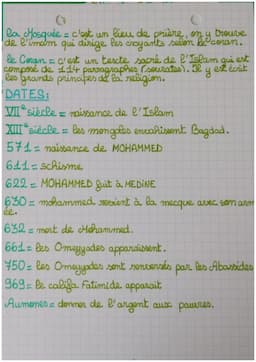 La Mosquée = c'est un lieu de prière, on y trouve
de l'imam qui dirige les croyants selon le coran.
le Coran = c'est un texte sacré de l'Islam qui est
composé de 114 paragraphes (sourates). Il y est écrit
les grands principes de la religion.
DATES:
VIIe siècle = naissance de l'Islam
XIIIe siècle = les mongoles envahissent Bagdad.
571 = naissance de MOHAMMED
611 = schisme
622 = MOHAMMED fuit à MEDINE
630 = mohammed revient à la mecque avec son arm
ée.
632 = mort de Mohammed.
661 = les Omeyyades apparaissent.
750 = les Omeyyades sont renversés par les Abassides
969 = le califa Fatimide apparait
Aumones = donner de l'argent aux pauvres.